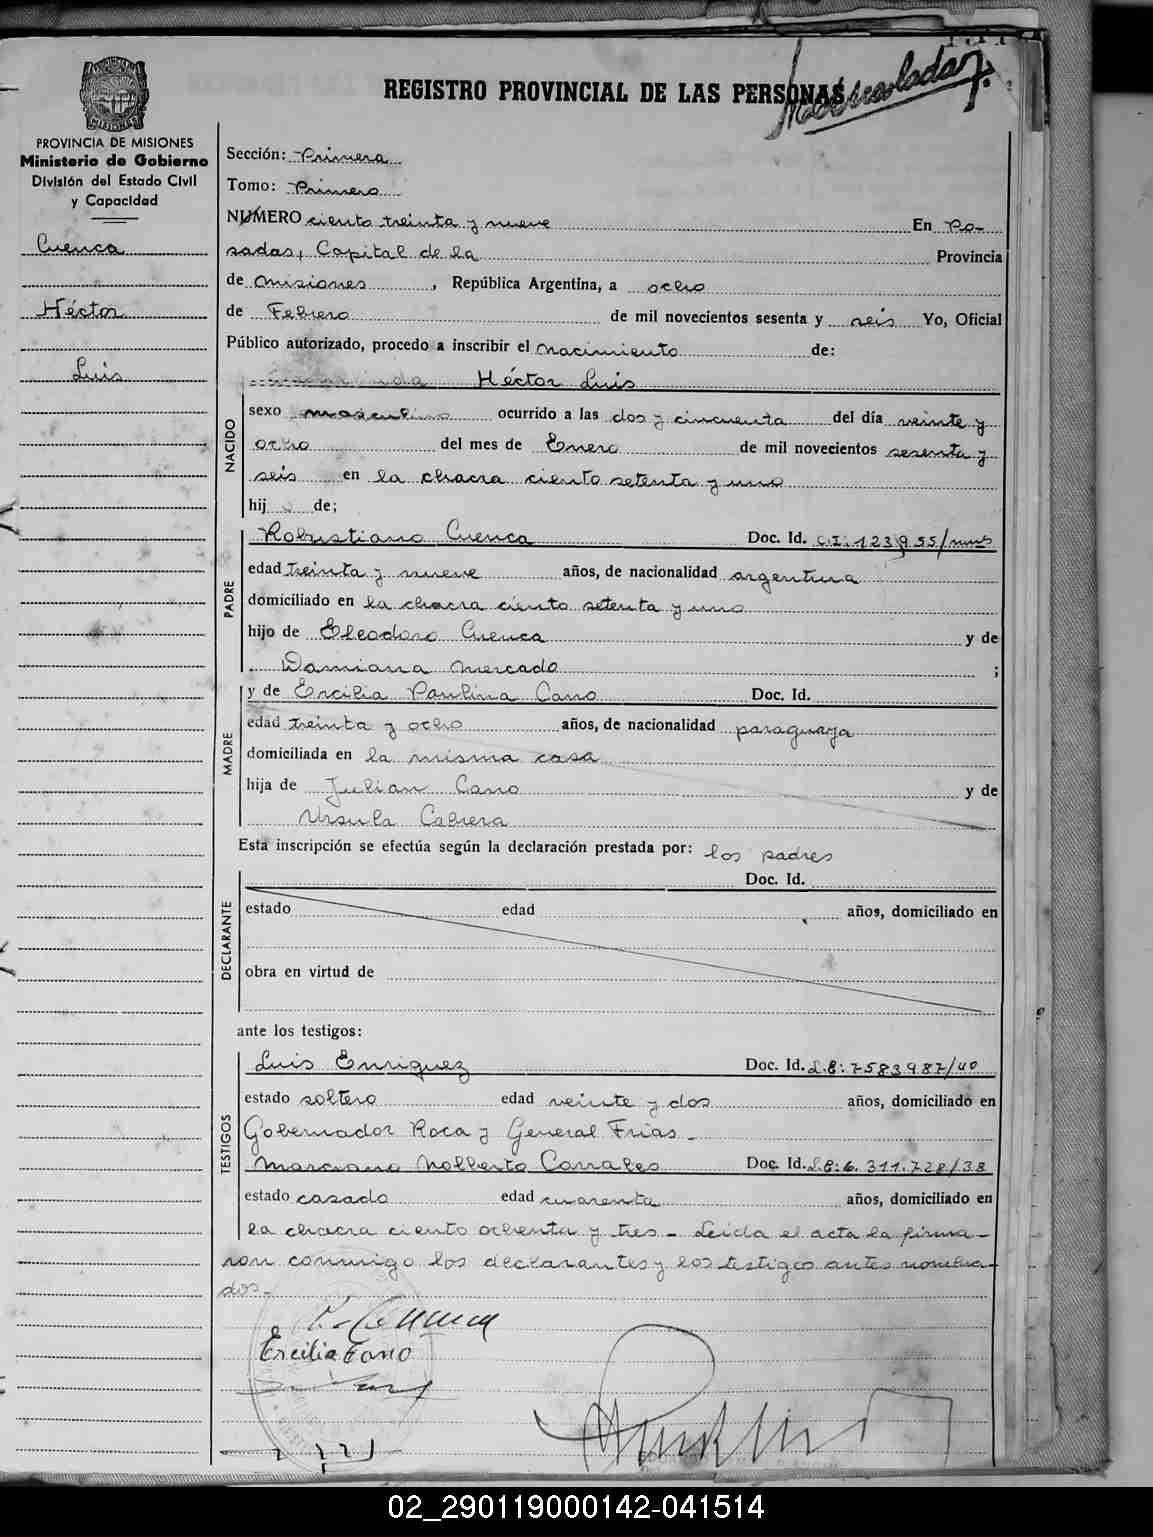 REGISTRO PROVINCIAL DE LAS PERSONAS
PROVINCIA DE MISIONES
Ministerio de Gobierno
División del Estado Civil
y Capacidad
Cuenca
Héctor
Luis
Sección: Primera
Tomo: Primero
NUMERO ciento treinta y nueve En Po-
sadas, Capital de la Provincia
de Misiones, República Argentina, a ocho
de Febrero de mil novecientos sesenta y seis Yo, Oficial
Público autorizado, procedo a inscribir el nacimiento de:
Héctor Luis
NACIDO
sexo masculino ocurrido a las dos y cincuenta del día veinte y
ocho del mes de Enero de mil novecientos sesenta y
seis en la chacra ciento setenta y uno
hijo de;
PADRE
Robustiano Cuenca Doc. Id. C.I: 123955/mnes
edad treinta y nueve años, de nacionalidad argentina
domiciliado en la chacra ciento setenta y uno
hijo de Eleodoro Cuenca y de
Damiana Mercado ;
MADRE
y de Ercilia Paulina Cano Doc. Id.
edad treinta y ocho años, de nacionalidad paraguaya
domiciliada en la misma casa
hija de Julian Cano y de
Ursula Cabrera
Esta inscripción se efectúa según la declaración prestada por: los padres
DECLARANTE
Doc. Id.
estado edad años, domiciliado en
obra en virtud de
ante los testigos:
TESTIGOS
Luis Enriquez Doc. Id. L.E: 7583987/40
estado soltero edad veinte y dos años, domiciliado en
Gobernador Roca y General Frias -
Marciano Nolberto Corrales Doc. Id. L.E: 6.311.728/38
estado casado edad cuarenta años, domiciliado en
la chacra ciento ochenta y tres - Leida el acta la firma-
ron conmigo los declarantes y los testigos antes nombra-
dos -
Ercilia Cano
02_290119000142-041514